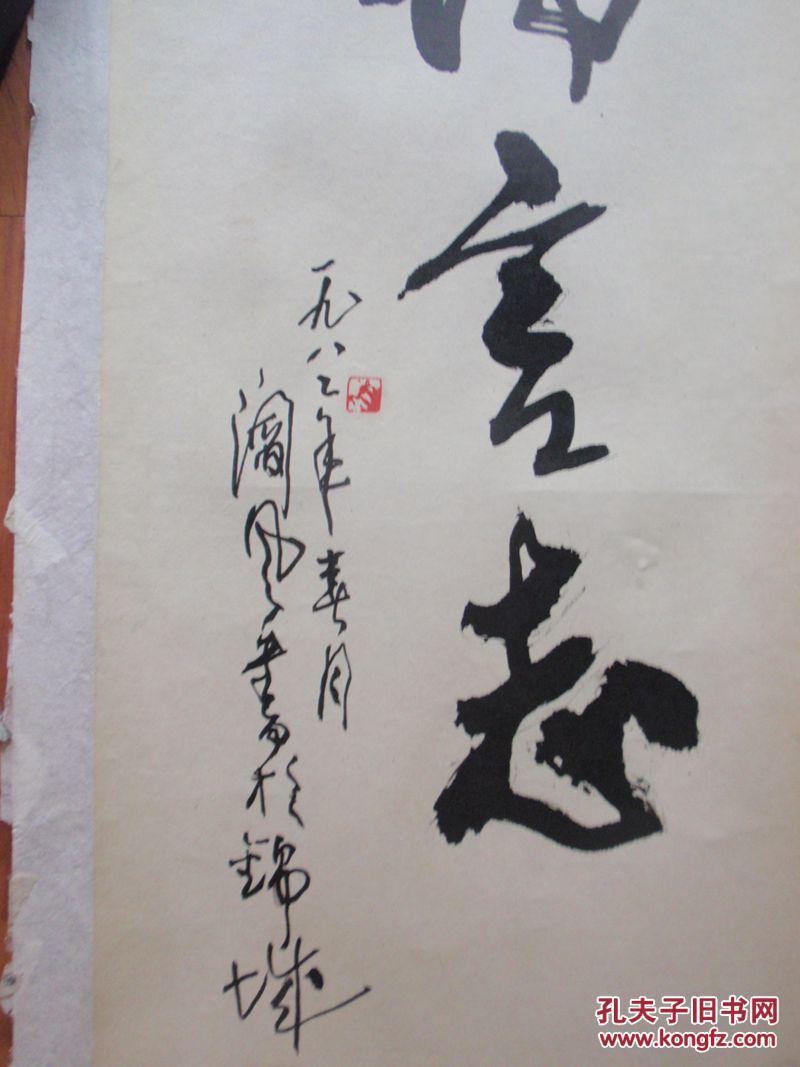 言志
一九八三年春月
風書於錦城
孔夫子旧书网
www.kongfz.com